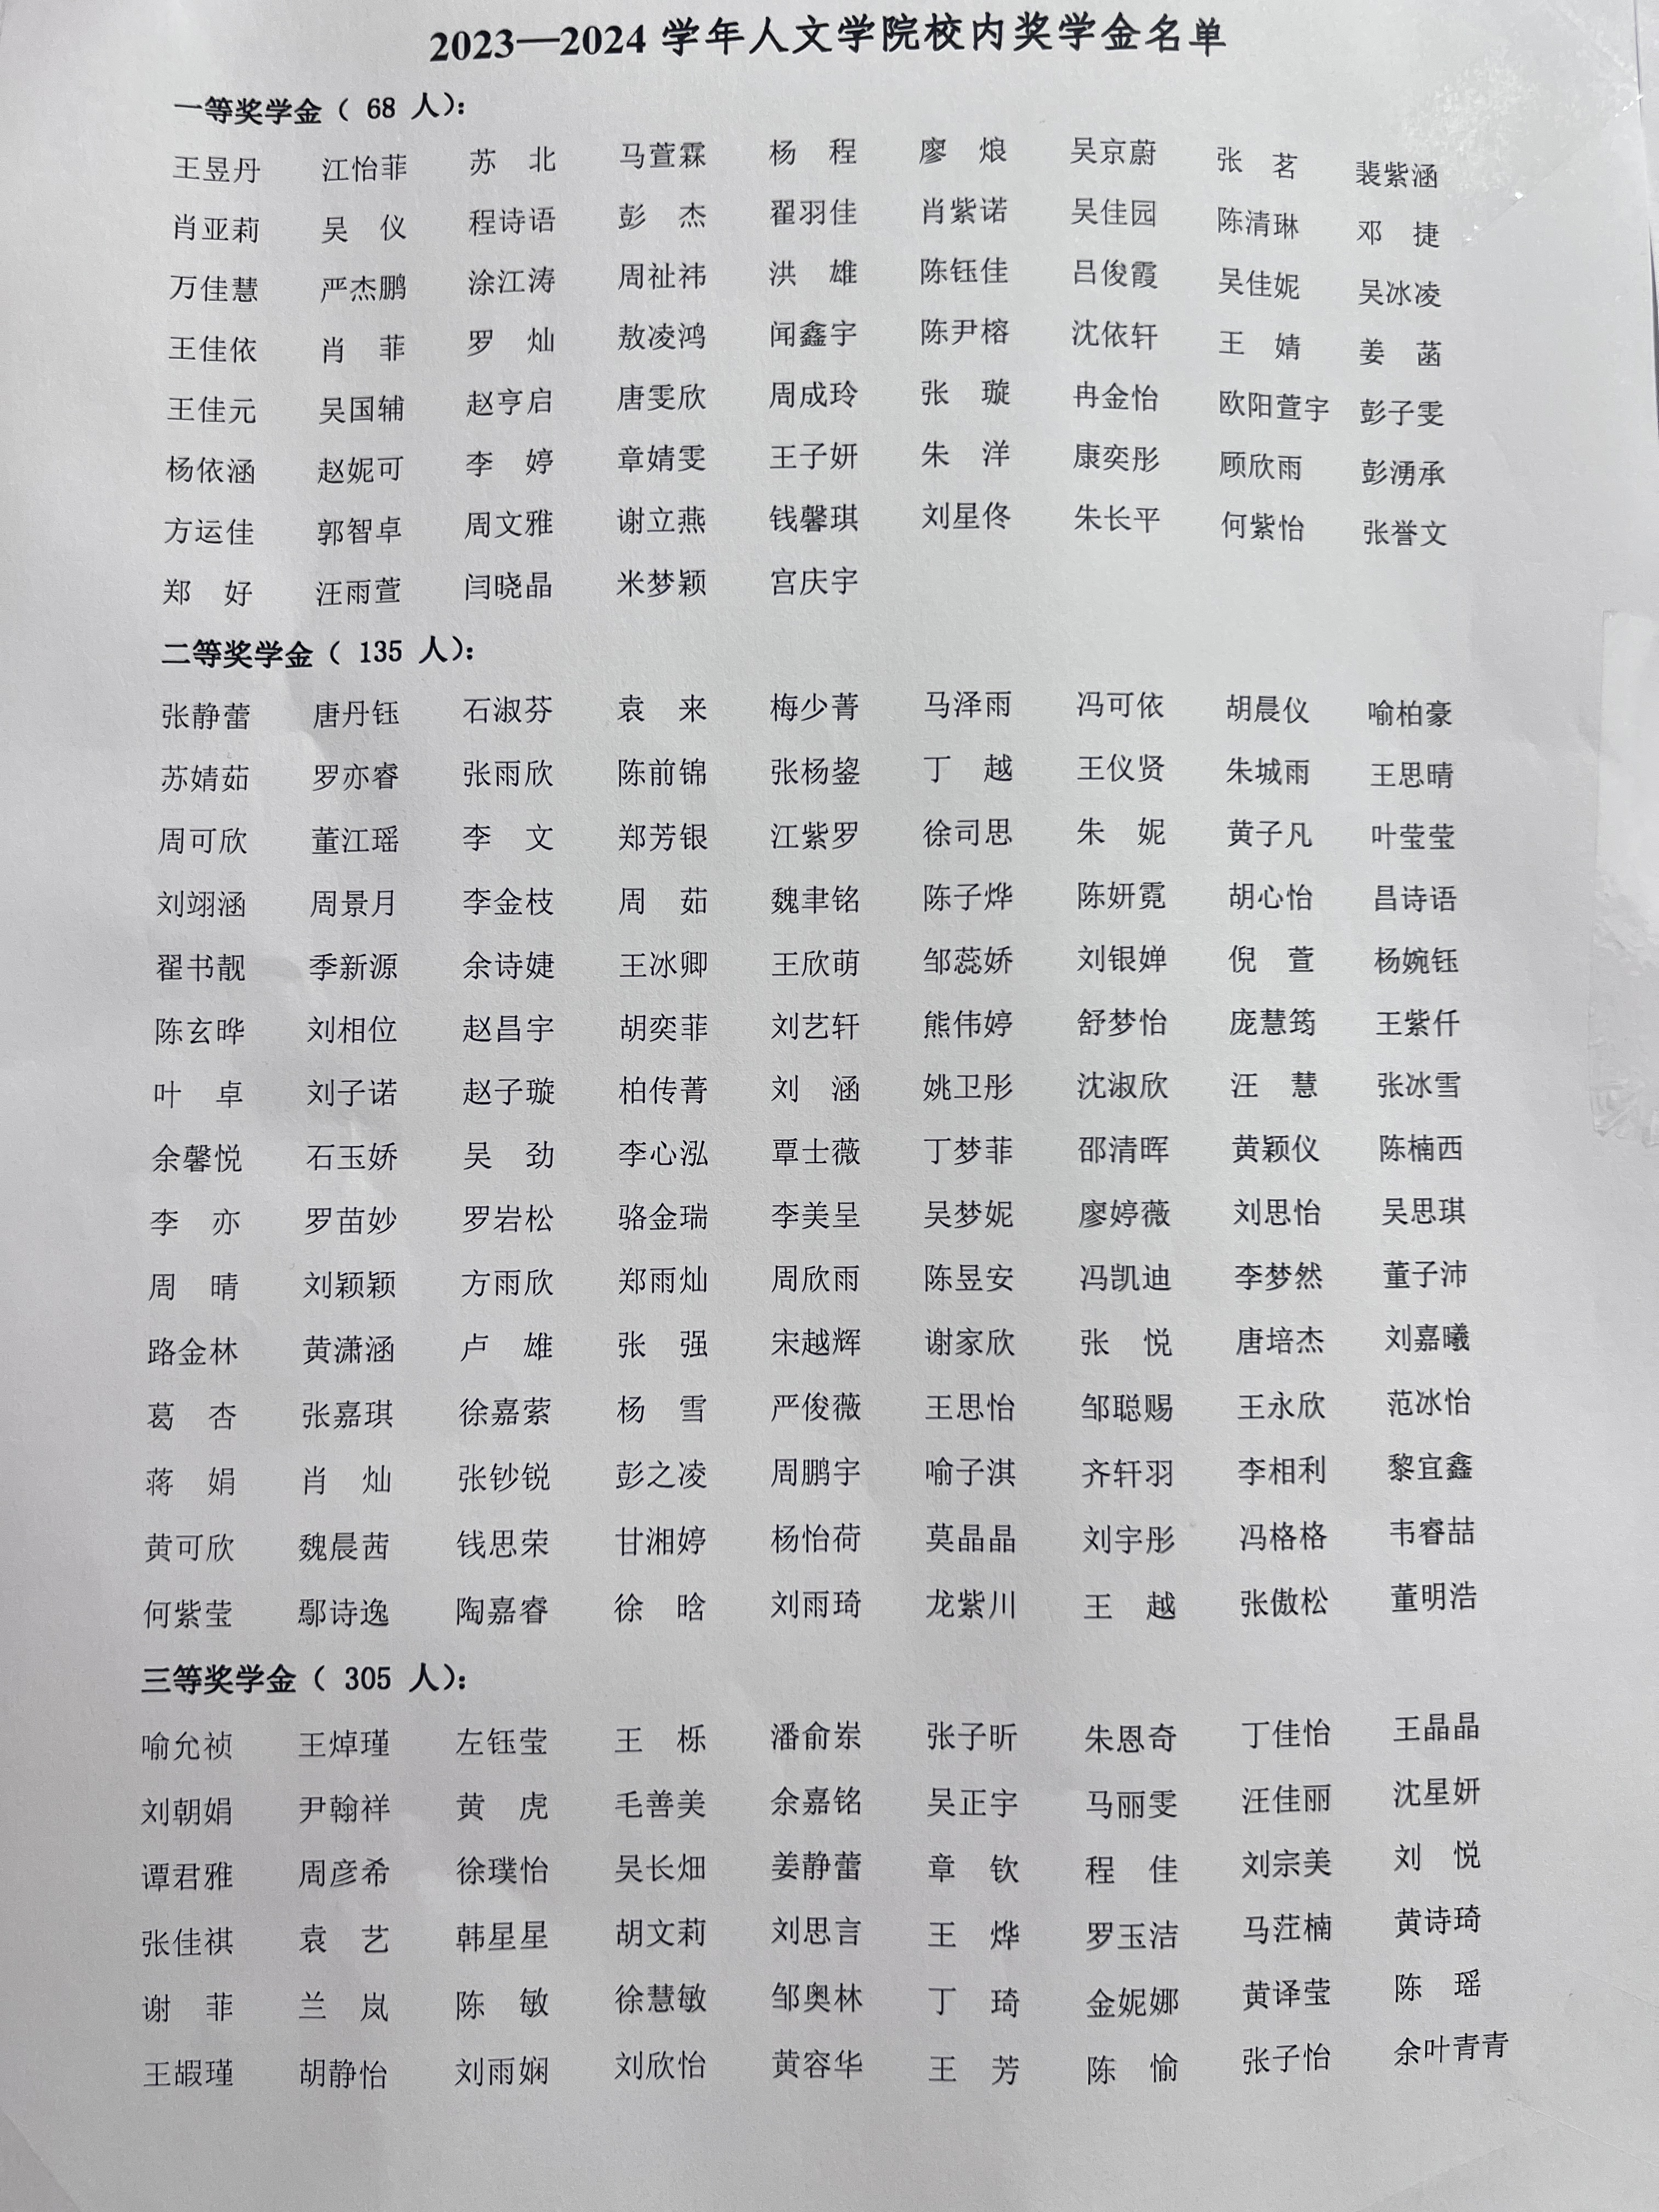 2023—2024 学年人文学院校内奖学金名单
一等奖学金（ 68 人）：
王昱丹 江怡菲 苏 北 马萱霖 杨 程 廖 烺 吴京蔚 张 茗 裴紫涵
肖亚莉 吴 仪 程诗语 彭 杰 翟羽佳 肖紫诺 吴佳园 陈清琳 邓 捷
万佳慧 严杰鹏 涂江涛 周祉祎 洪 雄 陈钰佳 吕俊霞 吴佳妮 吴冰凌
王佳依 肖 菲 罗 灿 敖凌鸿 闻鑫宇 陈尹榕 沈依轩 王 婧 姜 菡
王佳元 吴国辅 赵亨启 唐雯欣 周成玲 张 璇 冉金怡 欧阳萱宇 彭子雯
杨依涵 赵妮可 李 婷 章婧雯 王子妍 朱 洋 康奕彤 顾欣雨 彭湧承
方运佳 郭智卓 周文雅 谢立燕 钱馨琪 刘星佟 朱长平 何紫怡 张誉文
郑 好 汪雨萱 闫晓晶 米梦颖 宫庆宇
二等奖学金（ 135 人）：
张静蕾 唐丹钰 石淑芬 袁 来 梅少菁 马泽雨 冯可依 胡晨仪 喻柏豪
苏婧茹 罗亦睿 张雨欣 陈前锦 张杨鋆 丁 越 王仪贤 朱城雨 王思晴
周可欣 董江瑶 李 文 郑芳银 江紫罗 徐司思 朱 妮 黄子凡 叶莹莹
刘翊涵 周景月 李金枝 周 茹 魏聿铭 陈子烨 陈妍霓 胡心怡 昌诗语
翟书靓 季新源 余诗婕 王冰卿 王欣萌 邹蕊娇 刘银婵 倪 萱 杨婉钰
陈玄晔 刘相位 赵昌宇 胡奕菲 刘艺轩 熊伟婷 舒梦怡 庞慧筠 王紫仟
叶 卓 刘子诺 赵子璇 柏传菁 刘 涵 姚卫彤 沈淑欣 汪 慧 张冰雪
余馨悦 石玉娇 吴 劲 李心泓 覃士薇 丁梦菲 邵清晖 黄颖仪 陈楠西
李 亦 罗苗妙 罗岩松 骆金瑞 李美呈 吴梦妮 廖婷薇 刘思怡 吴思琪
周 晴 刘颖颖 方雨欣 郑雨灿 周欣雨 陈昱安 冯凯迪 李梦然 董子沛
路金林 黄潇涵 卢 雄 张 强 宋越辉 谢家欣 张 悦 唐培杰 刘嘉曦
葛 杏 张嘉琪 徐嘉萦 杨 雪 严俊薇 王思怡 邹聪赐 王永欣 范冰怡
蒋 娟 肖 灿 张钞锐 彭之凌 周鹏宇 喻子淇 齐轩羽 李相利 黎宜鑫
黄可欣 魏晨茜 钱思荣 甘湘婷 杨怡荷 莫晶晶 刘宇彤 冯格格 韦睿喆
何紫莹 鄢诗逸 陶嘉睿 徐 晗 刘雨琦 龙紫川 王 越 张傲松 董明浩
三等奖学金（ 305 人）：
喻允祯 王焯瑾 左钰莹 王 栎 潘俞岽 张子昕 朱恩奇 丁佳怡 王晶晶
刘朝娟 尹翰祥 黄 虎 毛善美 余嘉铭 吴正宇 马丽雯 汪佳丽 沈星妍
谭君雅 周彦希 徐璞怡 吴长畑 姜静蕾 章 钦 程 佳 刘宗美 刘 悦
张佳祺 袁 艺 韩星星 胡文莉 刘思言 王 烨 罗玉洁 马茳楠 黄诗琦
谢 菲 兰 岚 陈 敏 徐慧敏 邹奥林 丁 琦 金妮娜 黄译莹 陈 瑶
王嘏瑾 胡静怡 刘雨娴 刘欣怡 黄容华 王 芳 陈 愉 张子怡 余叶青青